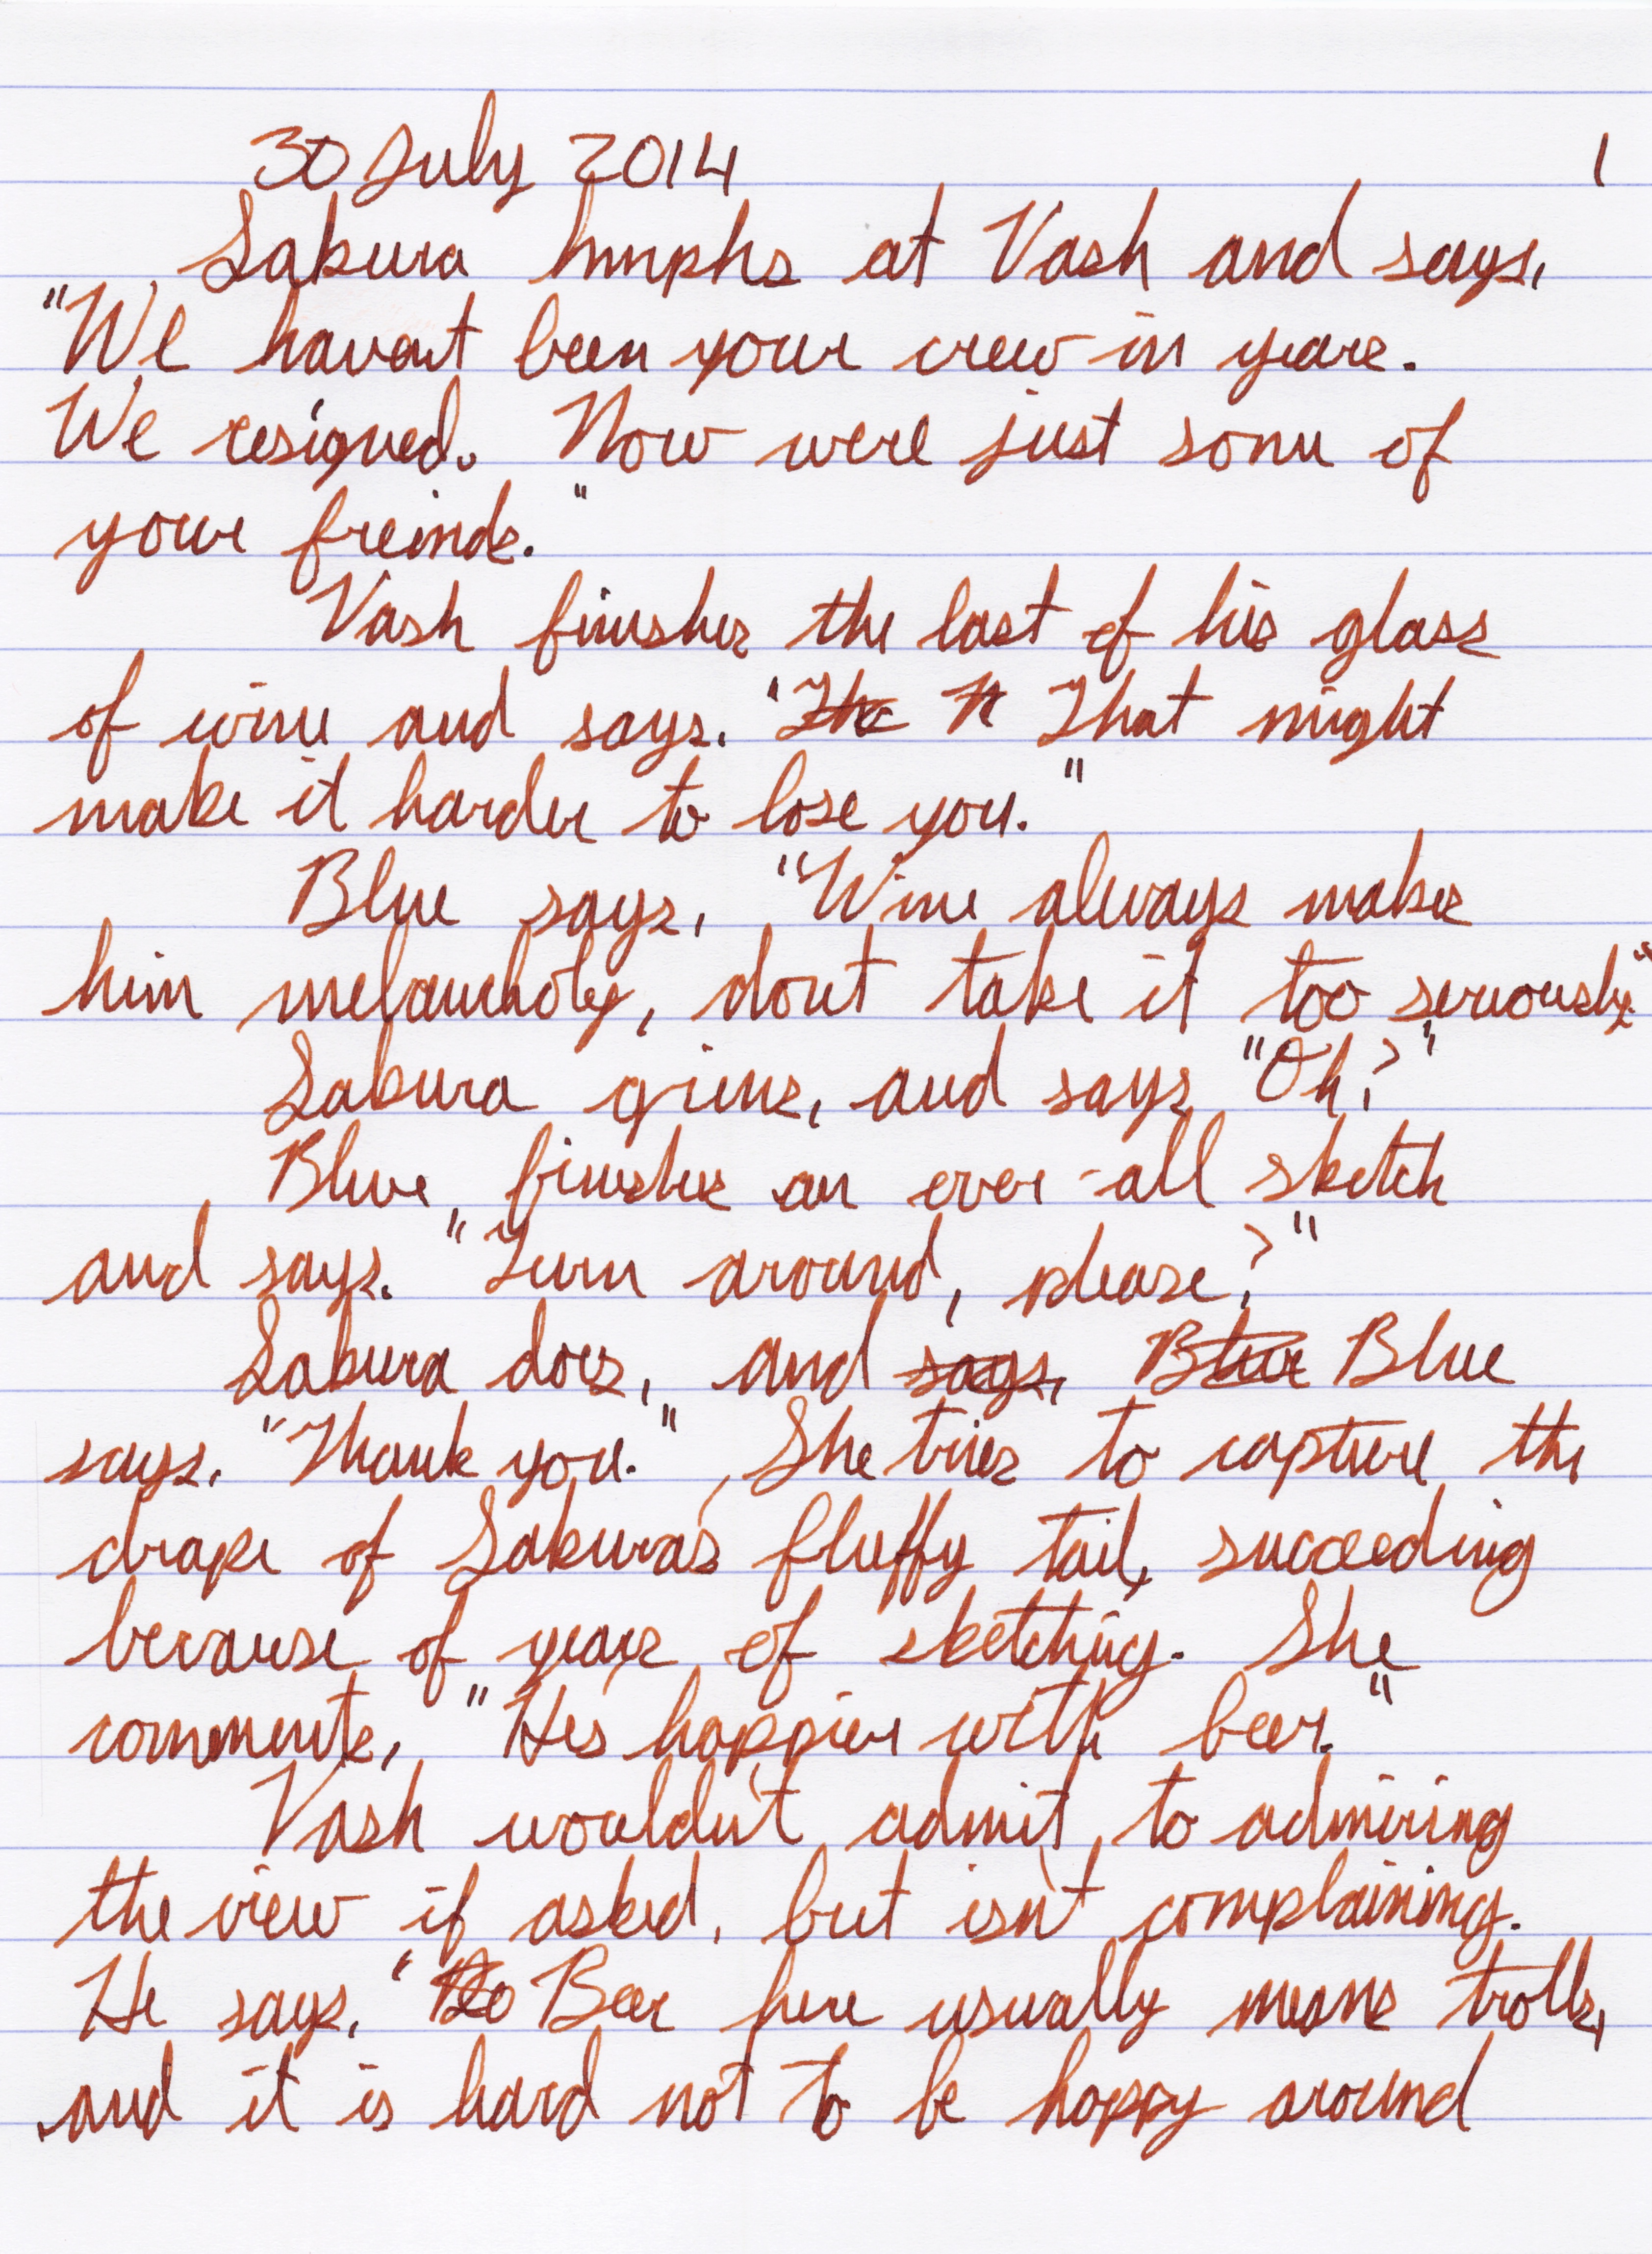 30 July 2014 1
Sakura hmphs at Vash and says,
"We havent been your crew in years.
We resigned. Now were just some of
your freinds."
Vash finishes the last of his glass
of wine and says. "The It That might
make it harder to lose you."
Blue says, "Wine always makes
him melancholy, dont take it too seriously."
Sakura grins, and says "Oh?"
Blue finishes an over-all sketch
and says. "Turn around, please?"
Sakura does, and says, Blue Blue
says. "Thank you." She tries to capture the
drape of Sakuras fluffy tail, succeeding
because of years of sketching. She
comments, "Hes happier with beer."
Vash wouldn't admit to admiring
the view if asked, but isn't complaining.
He says. "Beer here usually means trolls,
and it is hard not to be happy around